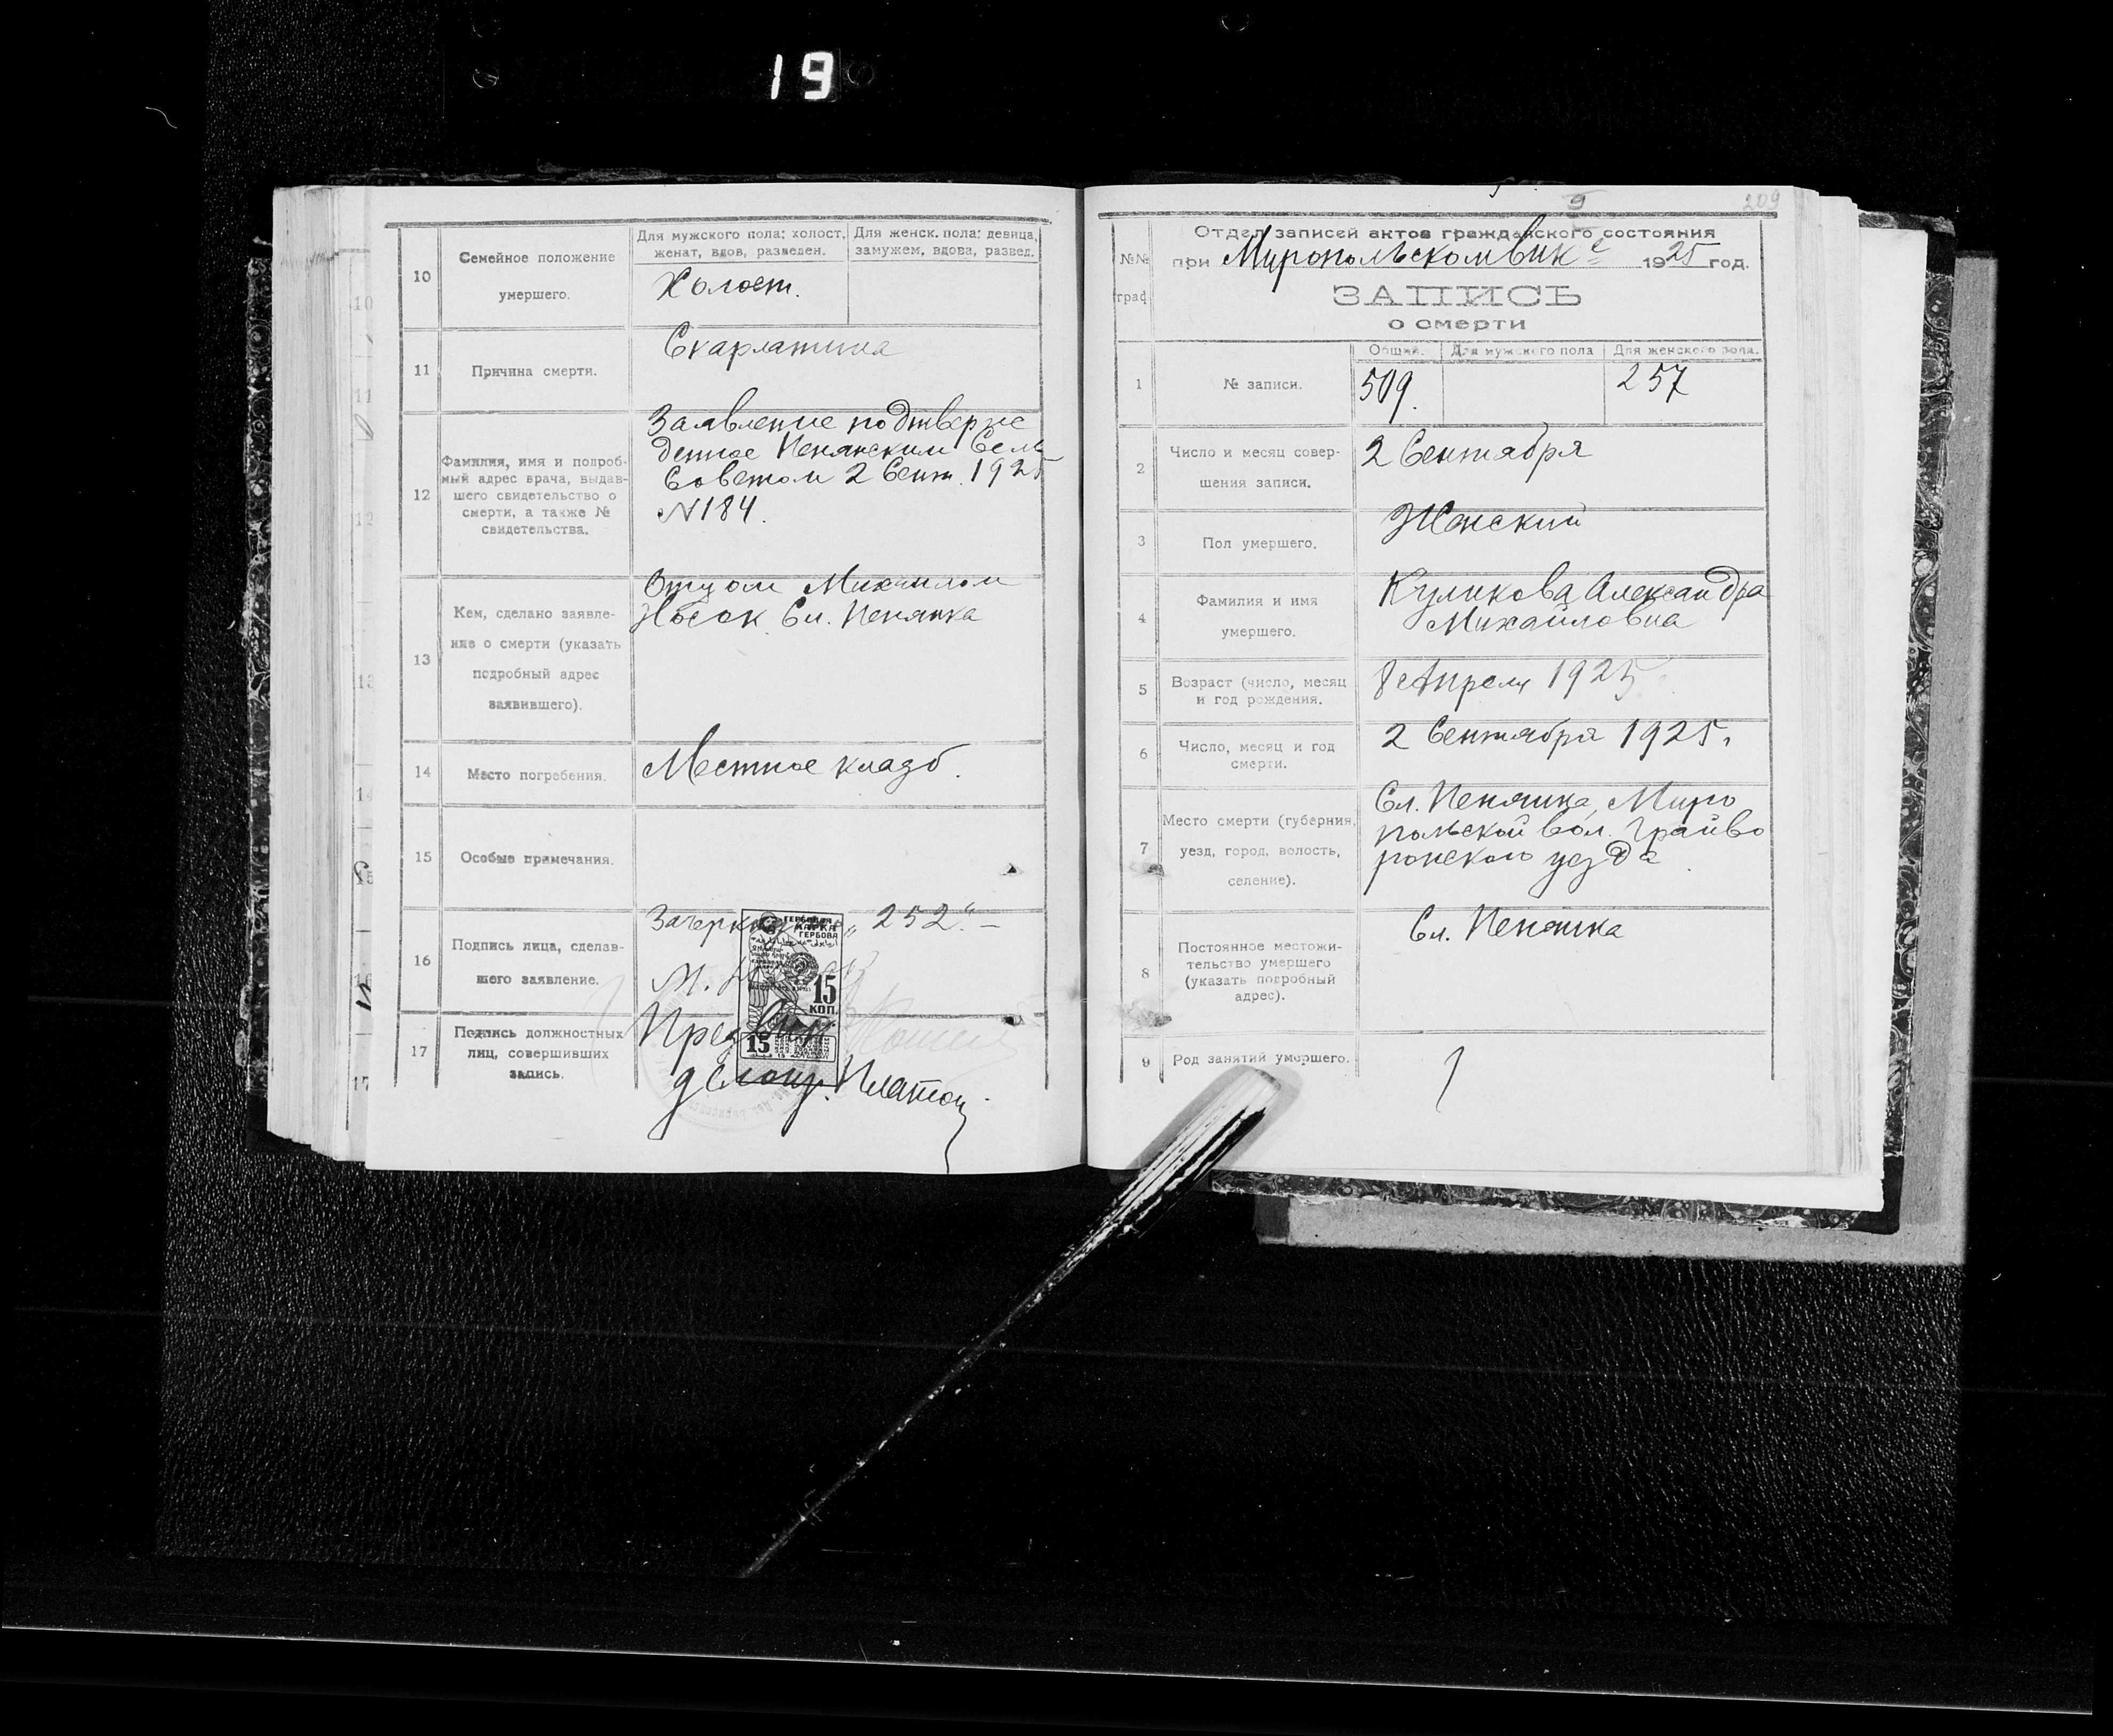 19
10
Семейное положение
умершего.
Для мужского пола: холост,
женат, вдов, разведен.
Для женск. пола: девица,
замужем, вдова, развед.
Холост.
11
Причина смерти.
Скарлатина
12
Фамилия, имя и подроб-
ный адрес врача, выдав-
шего свидетельство о
смерти, а также №
свидетельства.
Заявление подтверж
денное Пенянским Сель
Советом 2 Сент. 1925
N184.
13
Кем, сделано заявле-
ние о смерти (указать
подробный адрес
заявившего).
Отцом Михаилом
Носок Сл. Пенянка
14
Место погребения.
Местное кладб.
15
Особые примечания.
16
Подпись лица, сделав-
шего заявление.
„252“ –
М.
ГЕРБОВАЯ
МАРКА
ГЕРБОВА
15
КОП.
15
17
Подпись должностных
лиц, совершивших
запись.
Предвик
делопр.
209
Отдел записей актов гражданского состояния
при Миропольскомвике 1925 год.
№№
граф
ЗАПИСЬ
о смерти
1
№ записи.
Общий.
Для мужского пола
Для женского пола.
509.
257
2
Число и месяц совер-
шения записи.
2 Сентября
3
Пол умершего.
Женский
4
Фамилия и имя
умершего.
Куликова Александра
Михайловна
5
Возраст (число, месяц
и год рождения.
8 Апреля 1925
6
Число, месяц и год
смерти.
2 Сентября 1925.
7
Место смерти (губерния,
уезд, город, волость,
селение).
Сл. Пенянка, Миро
польской вол. Грайво
ронского уезда
8
Постоянное местожи-
тельство умершего
(указать подробный
адрес).
Сл. Пенянка
9
Род занятий умершего.